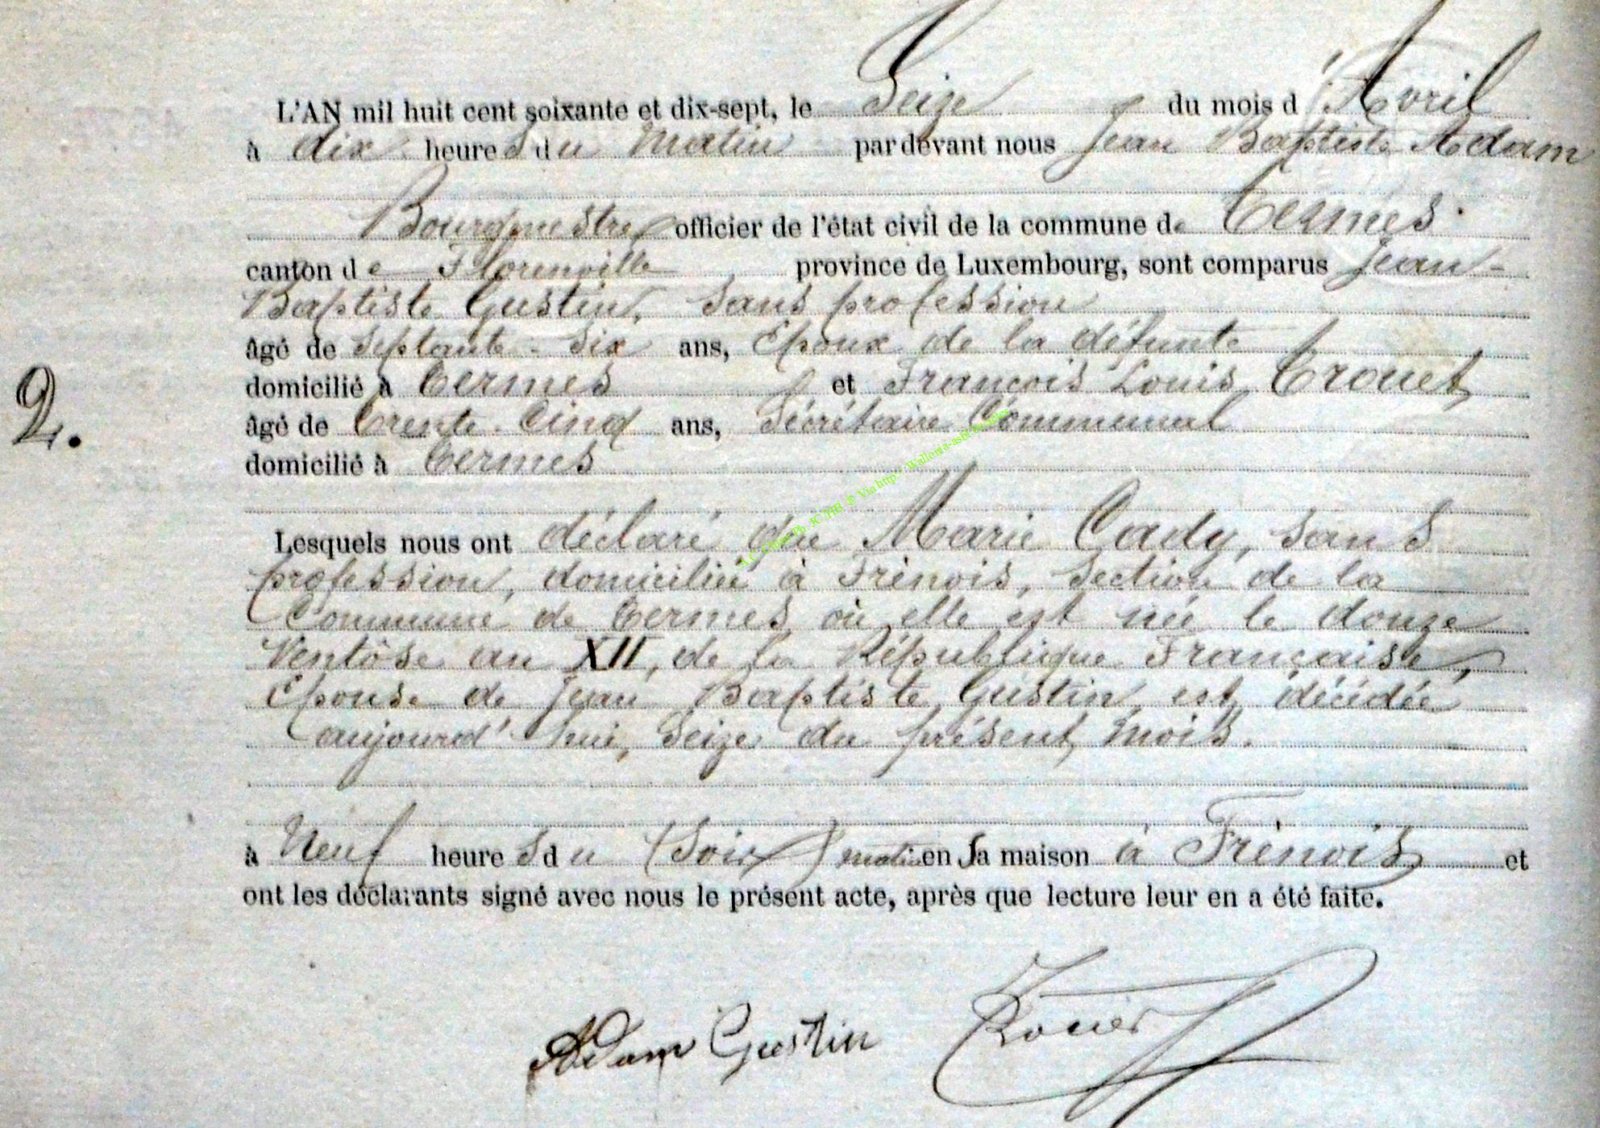 L'AN mil huit cent soixante et dix-sept, le Seize du mois d'Avril
à dix heures du Matin par devant nous Jean Baptiste Adam
Bourgmestre officier de l'état civil de la commune de Termes.
canton de Florenville province de Luxembourg, sont comparus Jean-
Baptiste Gustin, sans profession
âgé de Septante-Six ans, Epoux de la défunte
domicilié à Termes et François Louis Trouet,
âgé de Trente-Cinq ans, Sécrétaire Communal
2.
domicilié à Termes
Lesquels nous ont déclaré que Marie Cady, sans
profession, domiciliée à Frênois, section de la
Commune de Termes où elle est née le douze
Ventôse an XII, de la République Française,
Epouse de Jean Baptiste Gustin, est décédée
aujourd'hui, Seize du présent mois.
à Neuf heures du (Soir) matin en sa maison à Frênois et
ont les déclarants signé avec nous le présent acte, après que lecture leur en a été faite.
Adam Gustin